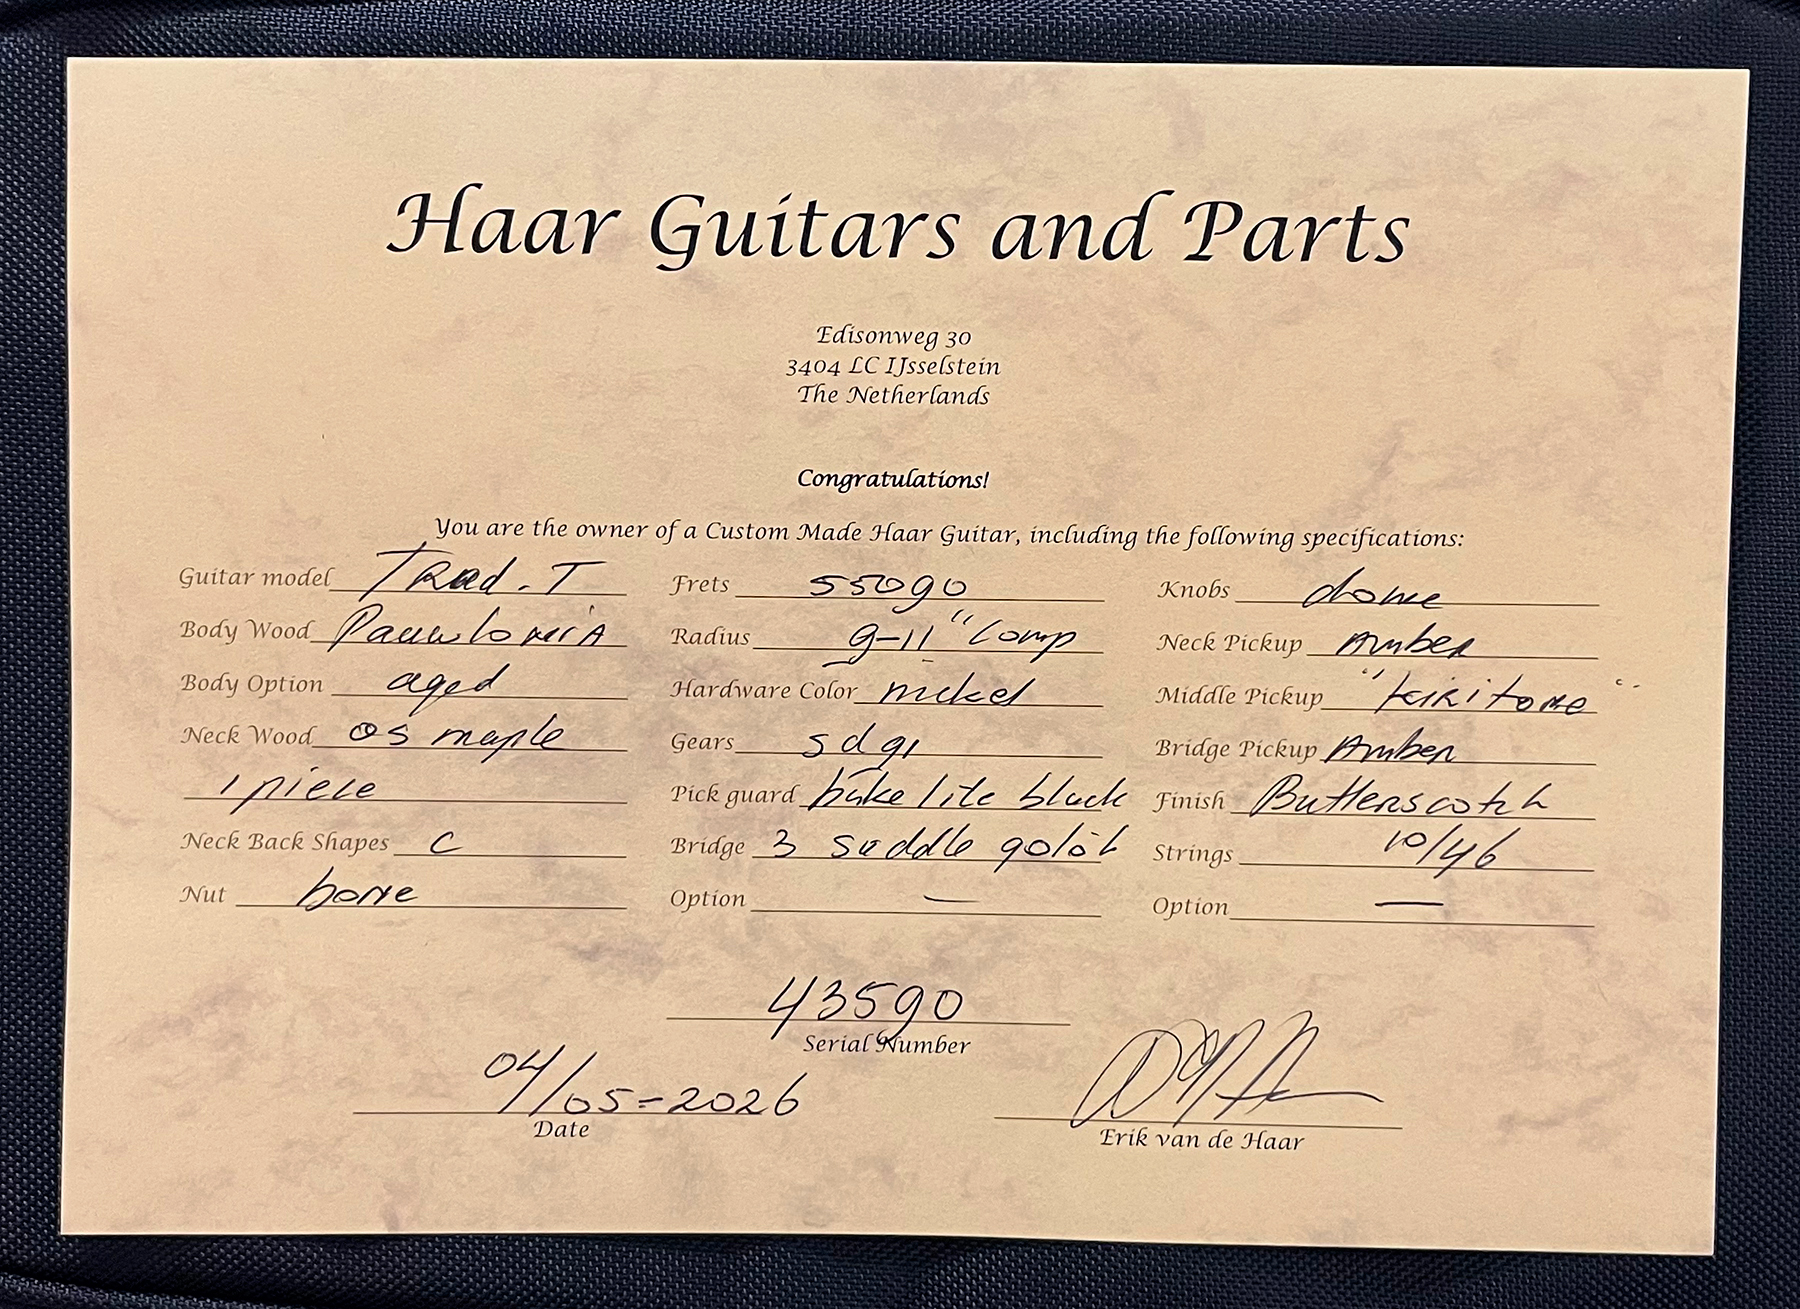 Haar Guitars and Parts
Edisonweg 30
3404 LC IJsselstein
The Netherlands
Congratulations!
You are the owner of a Custom Made Haar Guitar, including the following specifications:
Guitar model TRad. T
Body Wood Pauwlownia
Body Option aged
Neck Wood QS maple
1 piece
Neck Back Shapes C
Nut bone
Frets 55090
Radius 9-11" comp
Hardware Color nickel
Gears sdg1
Pick guard bakelite black
Bridge 3 saddle gotoh
Option —
Knobs dome
Neck Pickup Amber
Middle Pickup "kiritone"
Bridge Pickup Amber
Finish Butterscotch
Strings 10/46
Option —
43590
Serial Number
04/05-2026
Date
Erik van de Haar